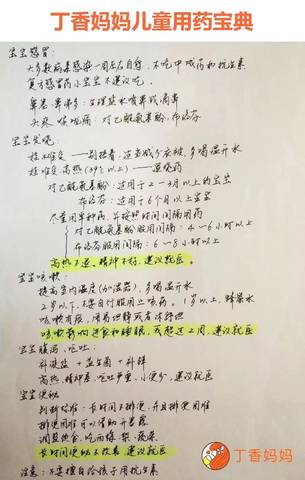 丁香妈妈儿童用药宝典
宝宝感冒:
大多数病毒感染一周左右自愈,不吃中成药和抗生素
复方感冒药小宝宝不建议吃。
鼻塞、鼻涕多:生理盐水喷鼻或滴鼻
头疼、喉咙痛:对乙酰氨基酚、布洛芬
宝宝发烧:
娃不难受——别捂着,适当减少衣被,多喝温开水
娃难受、高热(39℃以上)——退烧药
对乙酰氨基酚:适用于2-3月以上的宝宝
布洛芬:适用于6个月以上宝宝
尽量用单种药,并按照时间间隔用药
对乙酰氨基酚服用间隔:4-6小时以上
布洛芬服用间隔:6-8小时以上
高热不退、精神不好,建议就医。
宝宝咳嗽:
提高室内湿度(加湿器),多喝温开水
2岁以下,不要自行服用止咳药。1岁以上,蜂蜜水
咳嗽有痰,
咳嗽影响进食和睡眠,或超过2周,建议就医
宝宝腹泻、呕吐:
补液盐+益生菌+补锌
高热、精神差、呕吐严重、小便少,建议就医
宝宝便秘
判断标准:长时间不排便,并且排便困难
排便困难可以借助开塞露
调整饮食,吃西梅、梨、菠菜
长时间便秘不改善,建议就医
注意:不要擅自给孩子用抗生素
丁香妈妈